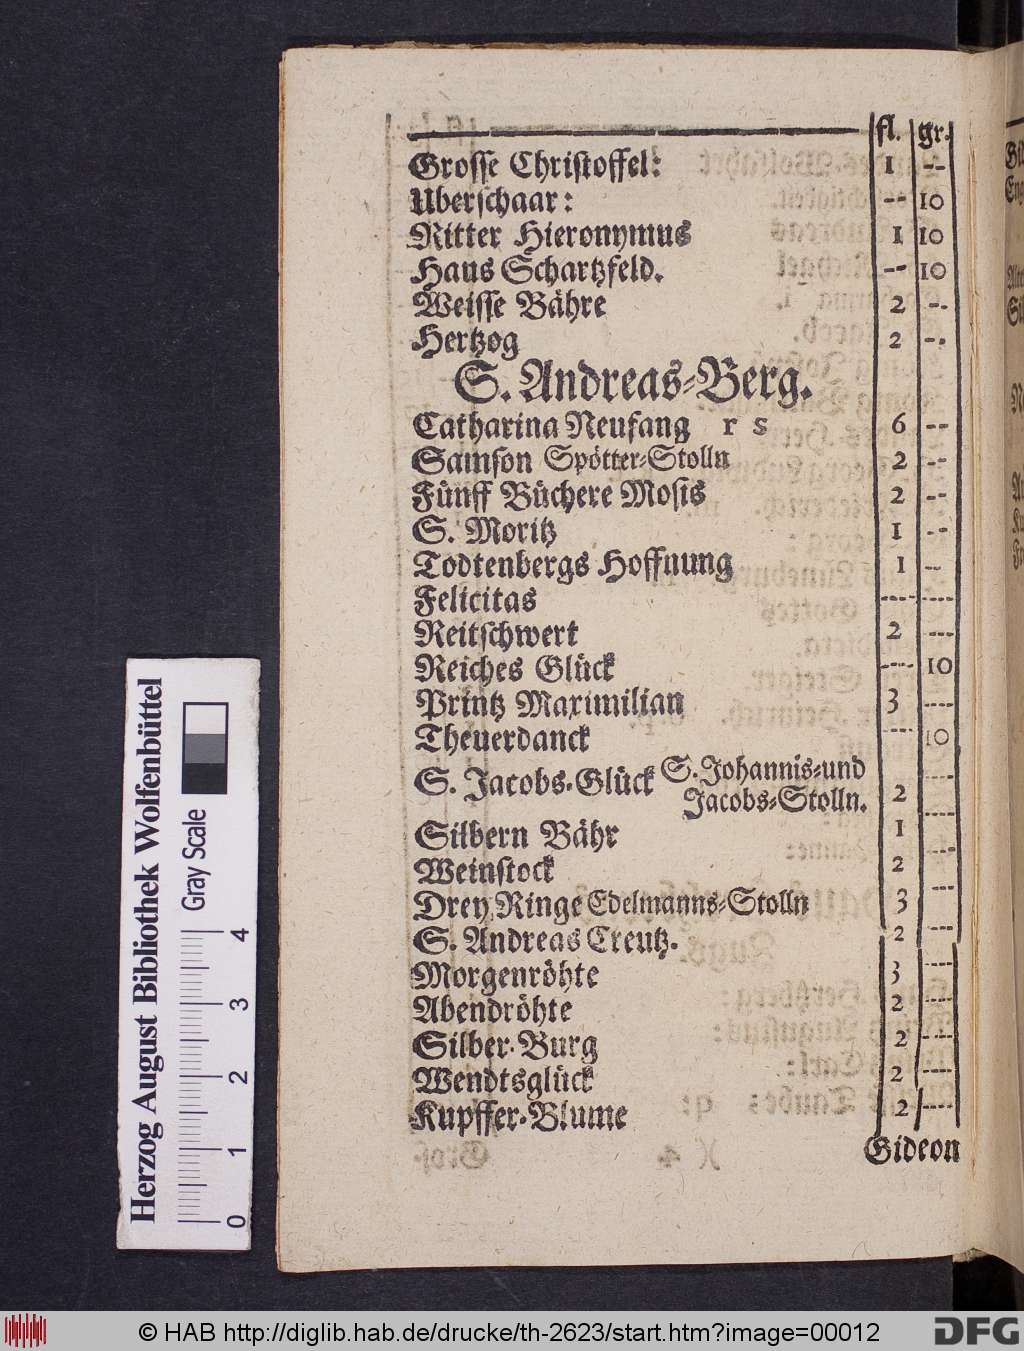 fl. gr.
Grosse Christoffel: 1 --
Uberschaar: -- 10
Ritter Hieronymus 1 10
Haus Schartzfeld. -- 10
Weisse Bähre 2 --
Hertzog 2 --
S. Andreas-Berg.
Catharina Neufang r s 6 --
Samson Spötter-Stolln 2 --
Fünff Büchere Mosis 2 --
S. Moritz 1 --
Todtenbergs Hoffnung 1 --
Felicitas ---- ----
Reitschwert 2 ---
Reiches Glück --- 10
Printz Maximilian 3 ----
Theuerdanck --- 10
S. Jacobs-Glück S. Johannis-und
Jacobs-Stolln. 2 ----
Silbern Bähr 1 ----
Weinstock 2 ---
Drey Ringe Edelmanns-Stolln 3 ---
S. Andreas Creutz. 2 ---
Morgenröhte 3 ----
Abendröhte 2 ----
Silber-Burg 2 ----
Wendtsglück 2 ----
Kupffer-Blume 2 ----
Gideon
Herzog August Bibliothek Wolfenbüttel
Gray Scale
0 1 2 3 4
© HAB http://diglib.hab.de/drucke/th-2623/start.htm?image=00012
DFG